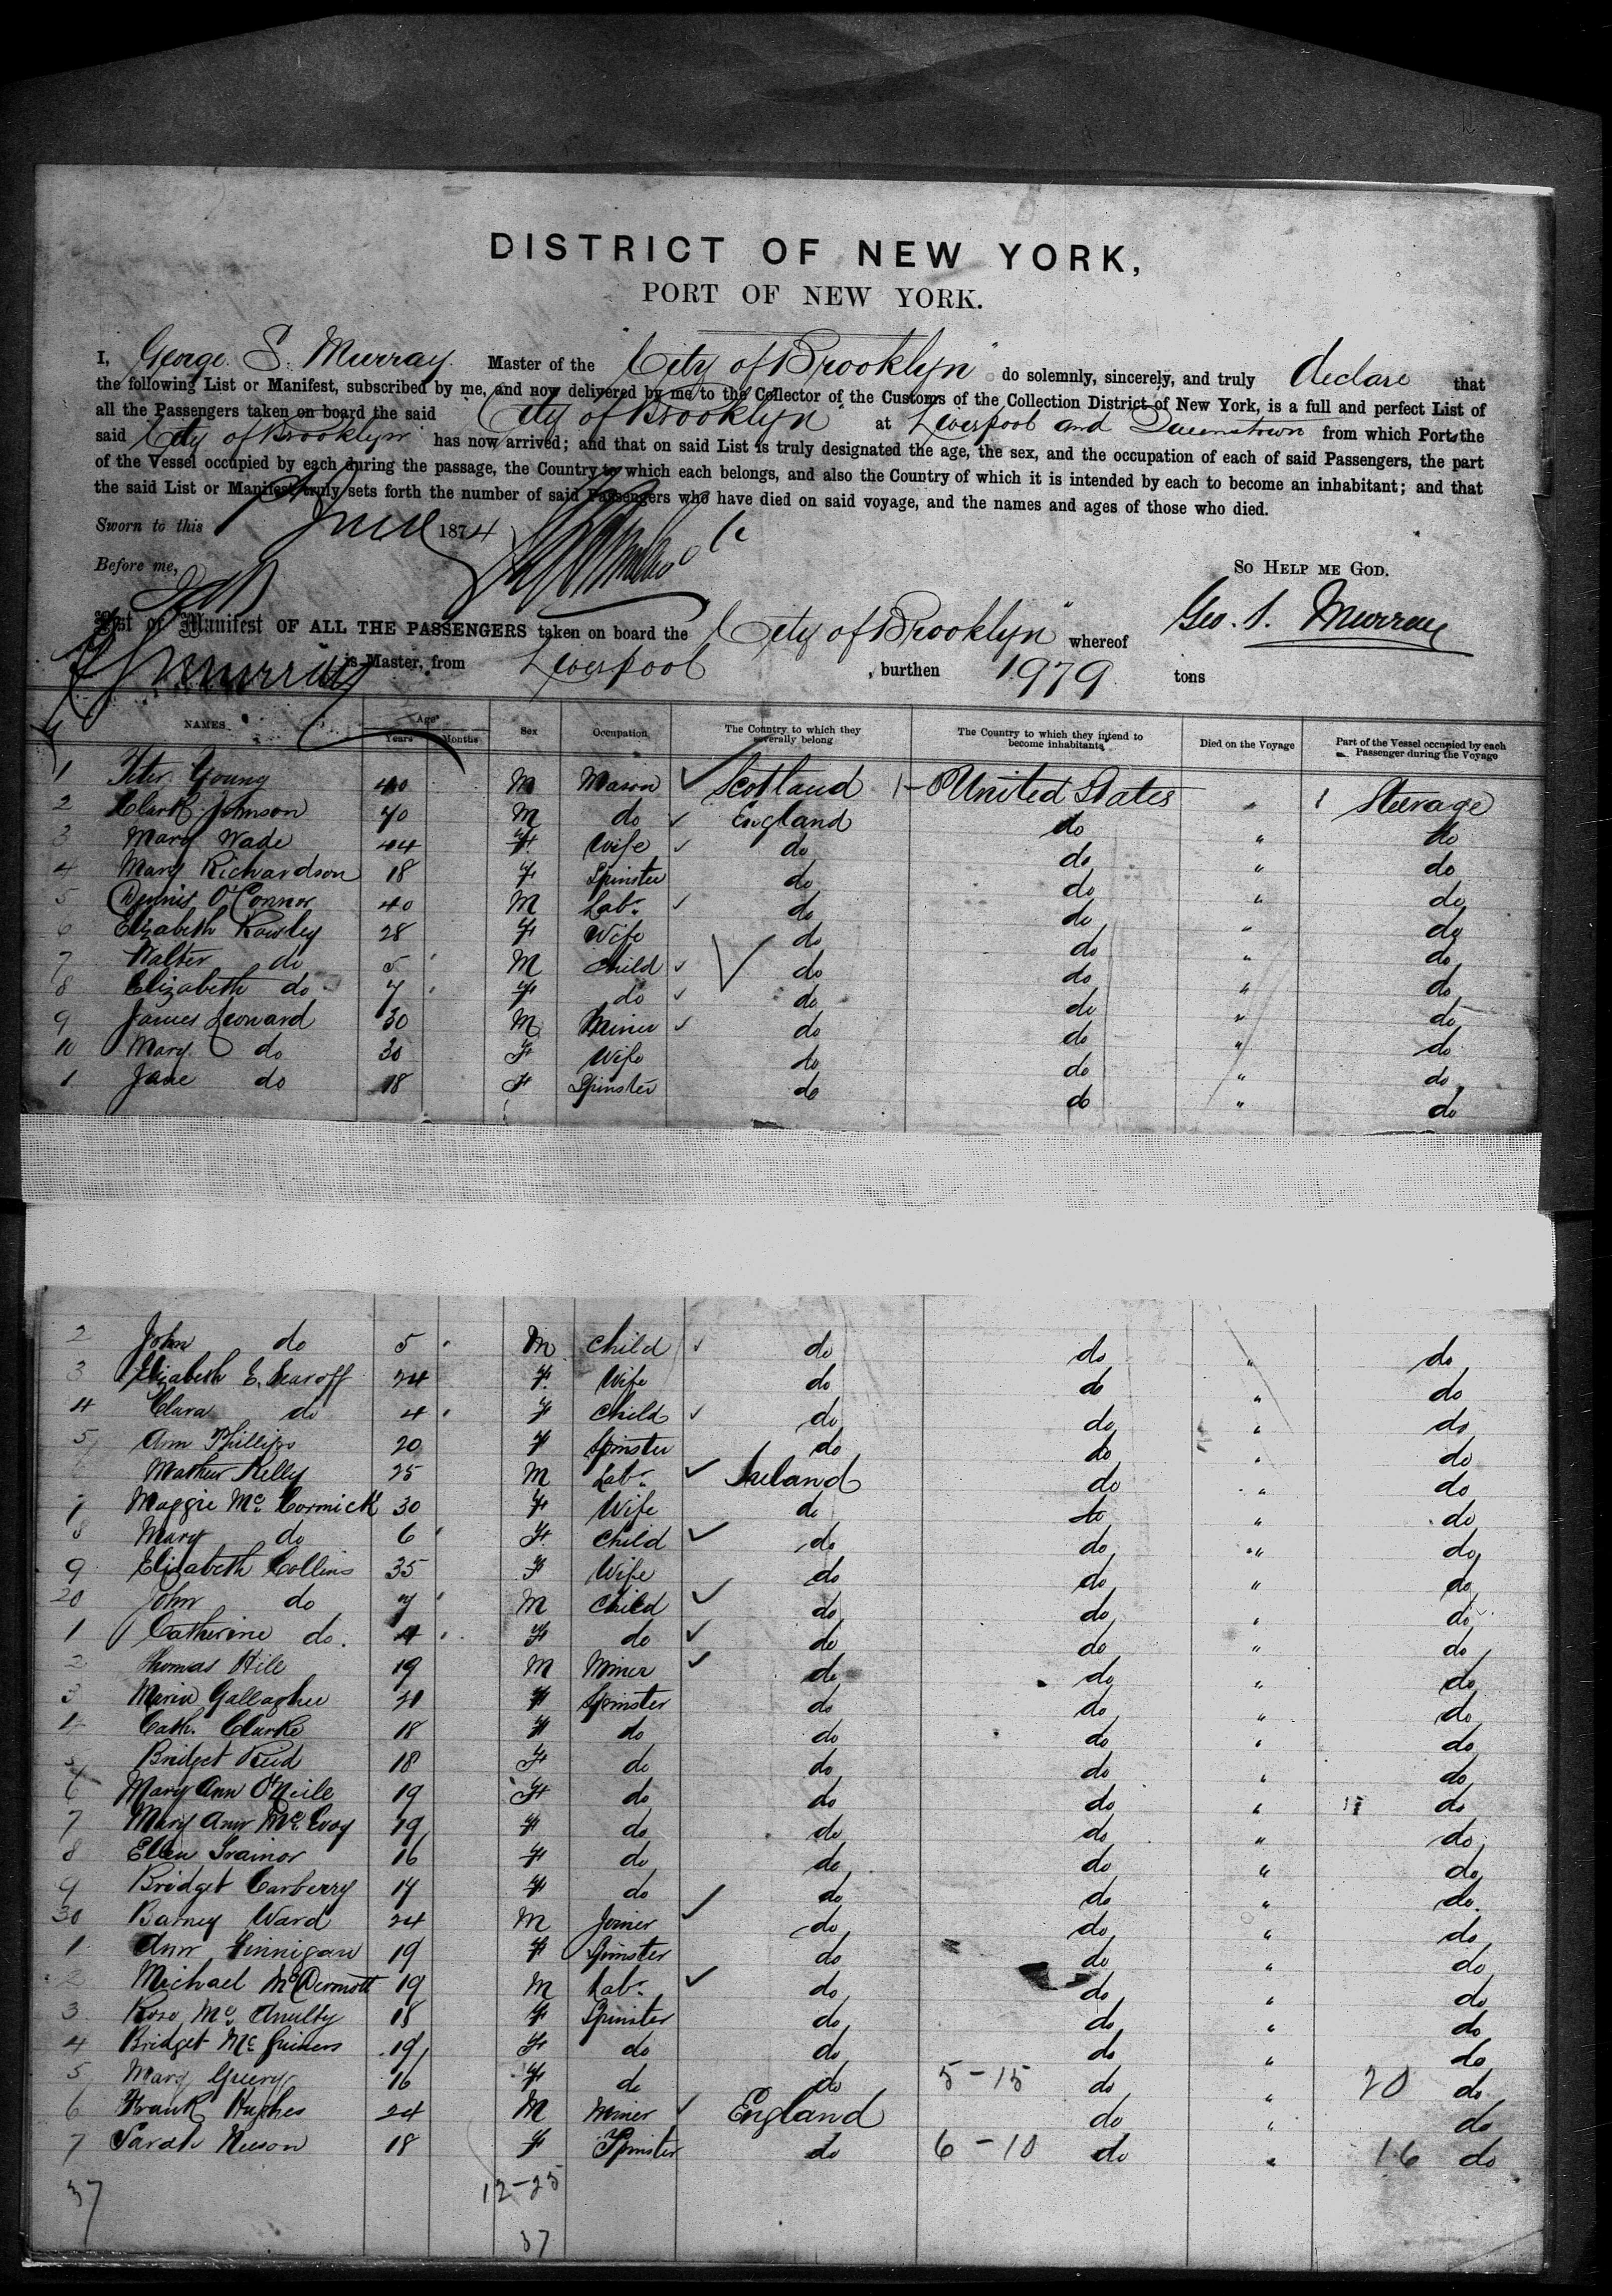 DISTRICT OF NEW YORK,
PORT OF NEW YORK.
I, George S. Murray Master of the "City of Brooklyn" do solemnly, sincerely, and truly declare that
the following List or Manifest, subscribed by me, and now delivered by me to the Collector of the Customs of the Collection District of New York, is a full and perfect List of
all the Passengers taken on board the said "City of Brooklyn" at Liverpool and Queenstown from which Port, the
said City of Brooklyn has now arrived; and that on said List is truly designated the age, the sex, and the occupation of each of said Passengers, the part
of the Vessel occupied by each during the passage, the Country to which each belongs, and also the Country of which it is intended by each to become an inhabitant; and that
the said List or Manifest truly sets forth the number of said Passengers who have died on said voyage, and the names and ages of those who died.
Sworn to this 1 June 1874
Before me,
So Help me God.
Geo. S. Murray
List or Manifest OF ALL THE PASSENGERS taken on board the "City of Brooklyn" whereof
G S Murray is Master, from Liverpool, burthen 1979 tons
NAMES Age Years Months Sex Occupation The Country to which they severally belong The Country to which they intend to become inhabitants Died on the Voyage Part of the Vessel occupied by each Passenger during the Voyage
1 Peter Young 40 M Mason Scotland 1-0 United States " 1 Steerage
2 Clark Johnson 40 M do England do " do
3 Mary Wade 44 F Wife do do " do
4 Mary Richardson 18 F Spinster do do " do
5 Dennis O'Connor 40 M Labr. do do " do
6 Elizabeth Rowley 28 F Wife do do " do
7 Walter do 5 M Child do do " do
8 Elizabeth do 7 F do do do " do
9 James Leonard 30 M Miner do do " do
10 Mary do 30 F Wife do do " do
1 Jane do 18 F Spinster do do " do
2 John do 5 M Child do do " do
3 Elizabeth E. 24 F Wife do do " do
4 Clara do 4 F Child do do " do
5 Ann Phillips 20 F Spinster do do " do
6 Mathew Kelly 25 M Labr. Ireland do " do
7 Maggie McCormick 30 F Wife do do " do
8 Mary do 6 F Child do do " do
9 Elizabeth Collins 35 F Wife do do " do
20 John do 7 M Child do do " do
1 Catherine do. 4 F do do do " do
2 Thomas Hile 19 M Miner do do " do
3 Maria Gallagher 21 F Spinster do do " do
4 Cath. Clarke 18 F do do do " do
5 Bridget Reid 18 F do do do " do
6 Mary Ann O'Neile 19 F do do do " do
7 Mary Ann McEvoy 19 F do do do " do
8 Ellen Grainor 16 F do do do " do
9 Bridget Carberry 17 F do do do " do.
30 Barney Ward 24 M Joiner do do " do
1 Ann Finnigan 19 F Spinster do do " do
2 Michael McDermott 19 M Labr. do do " do
3 Rose McAnulty 18 F Spinster do do " do
4 Bridget Mc 19 F do do do " do
5 Mary 16 F do do 5-15 do " 20 do
6 Frank Hughes 24 M Miner England do " do
7 Sarah Neeson 18 F Spinster do 6-10 do " 16 do
37 12-25
37